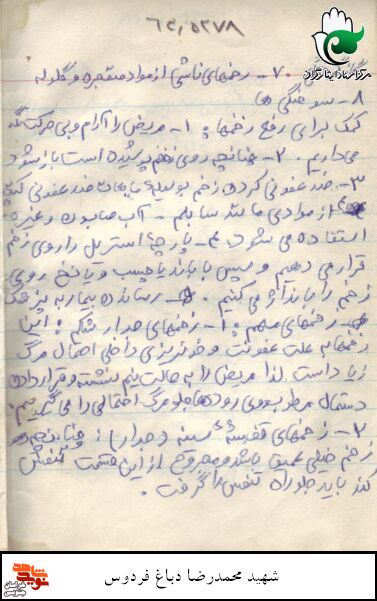 ۶۴,۵۲۷۸
مرکز اسناد ایثارگران
۷- زخمهای ناشی از مواد منفجره و گلوله
۸- سوختگی ها
کمک برای رفع زخمها: ۱- مریض را آرام و بی حرکت نگه
می داریم. ۲- چنانچه روی زخم پوشیده است باز شود
۳- ضد عفونی کردن زخم بوسیله مایعات ضد عفونی کننده
از موادی مانند ساولم - آب صابون و غیره
استفاده می شود. ۴- پارچه استریل را روی زخم
قرار می دهیم و سپس با باند یا چسب و یا نخ روی
زخم را باند آژ می کنیم. ۵- رساندن بیمار به پزشک
زخمهای مهم: ۱- زخمهای جدار شکم: این
زخمها به علت عفونت و خونریزی داخلی احتمال مرگ
زیاد است. لذا مریض را به حالت نیم نشسته و قرار دادن
دستمال مرطوب روی روده ها جلو مرگ احتمالی را می گیریم.
۲- زخمهای قفسه سینه (جدار): چنانچه
زخم خیلی عمیق باشد و مجروح از این قسمت تنفس
کند باید جلو راه تنفس را گرفت.
شهید محمدرضا دباغ فردوس